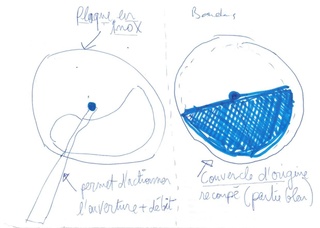 Plaque en
inox
permet d'actionner
l'ouverture + débit
Couvercle d'origine
recoupé (partie bleu)